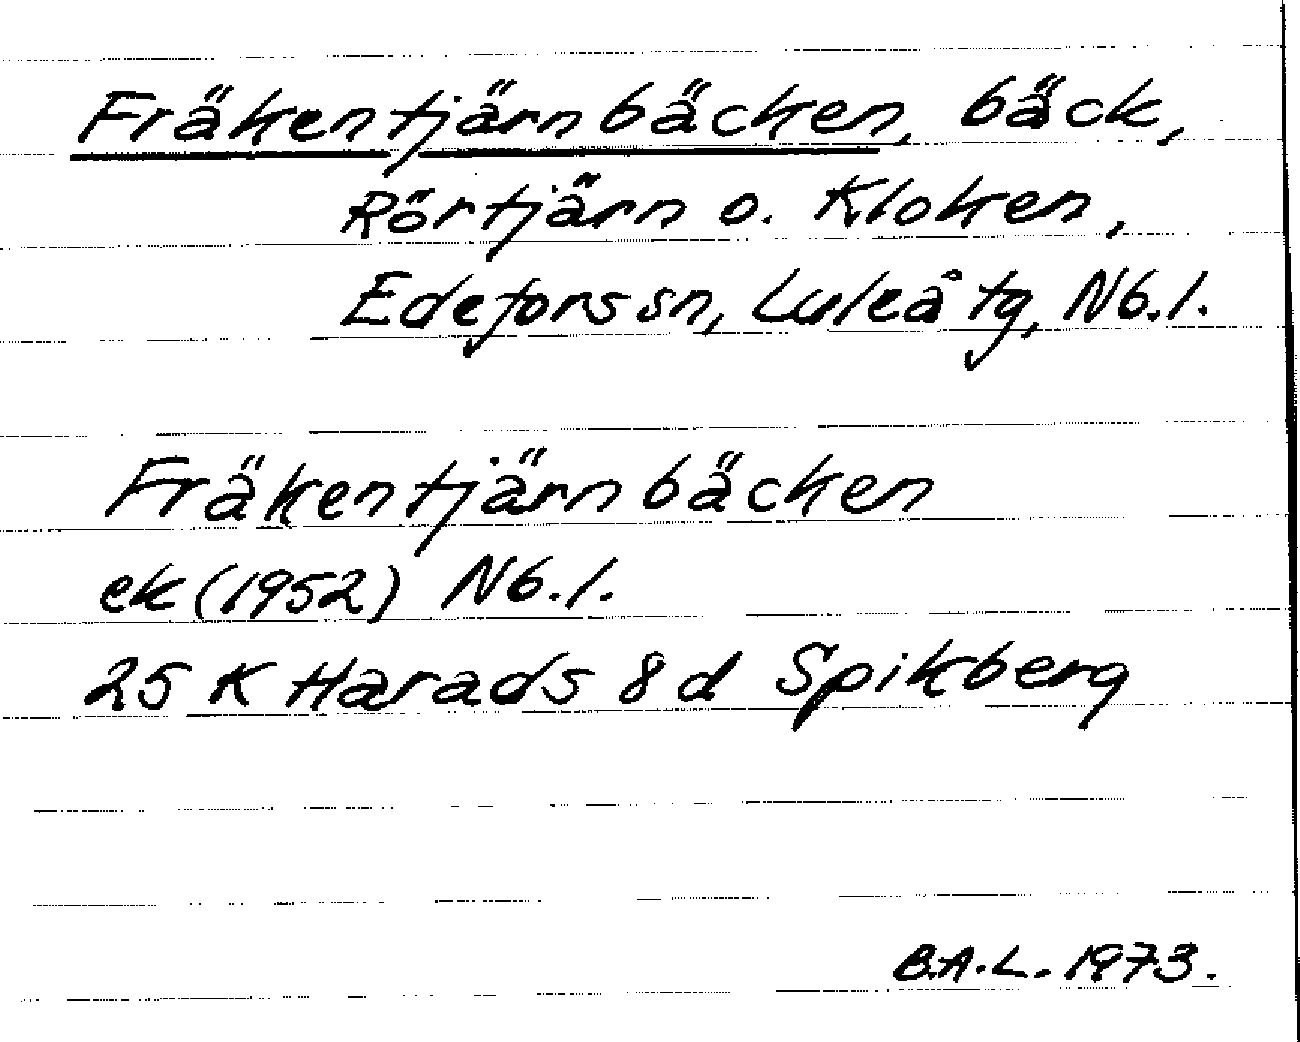 Fräkentjärnbäcken, bäck,
Rörtjärn o. Kloken,
Edefors sn, Luleå tg, Nb.l.
Fräkentjärnbäcken
ek (1952) Nb.l.
25 K Harads 8 d Spikberg
B.A.L. 1973.